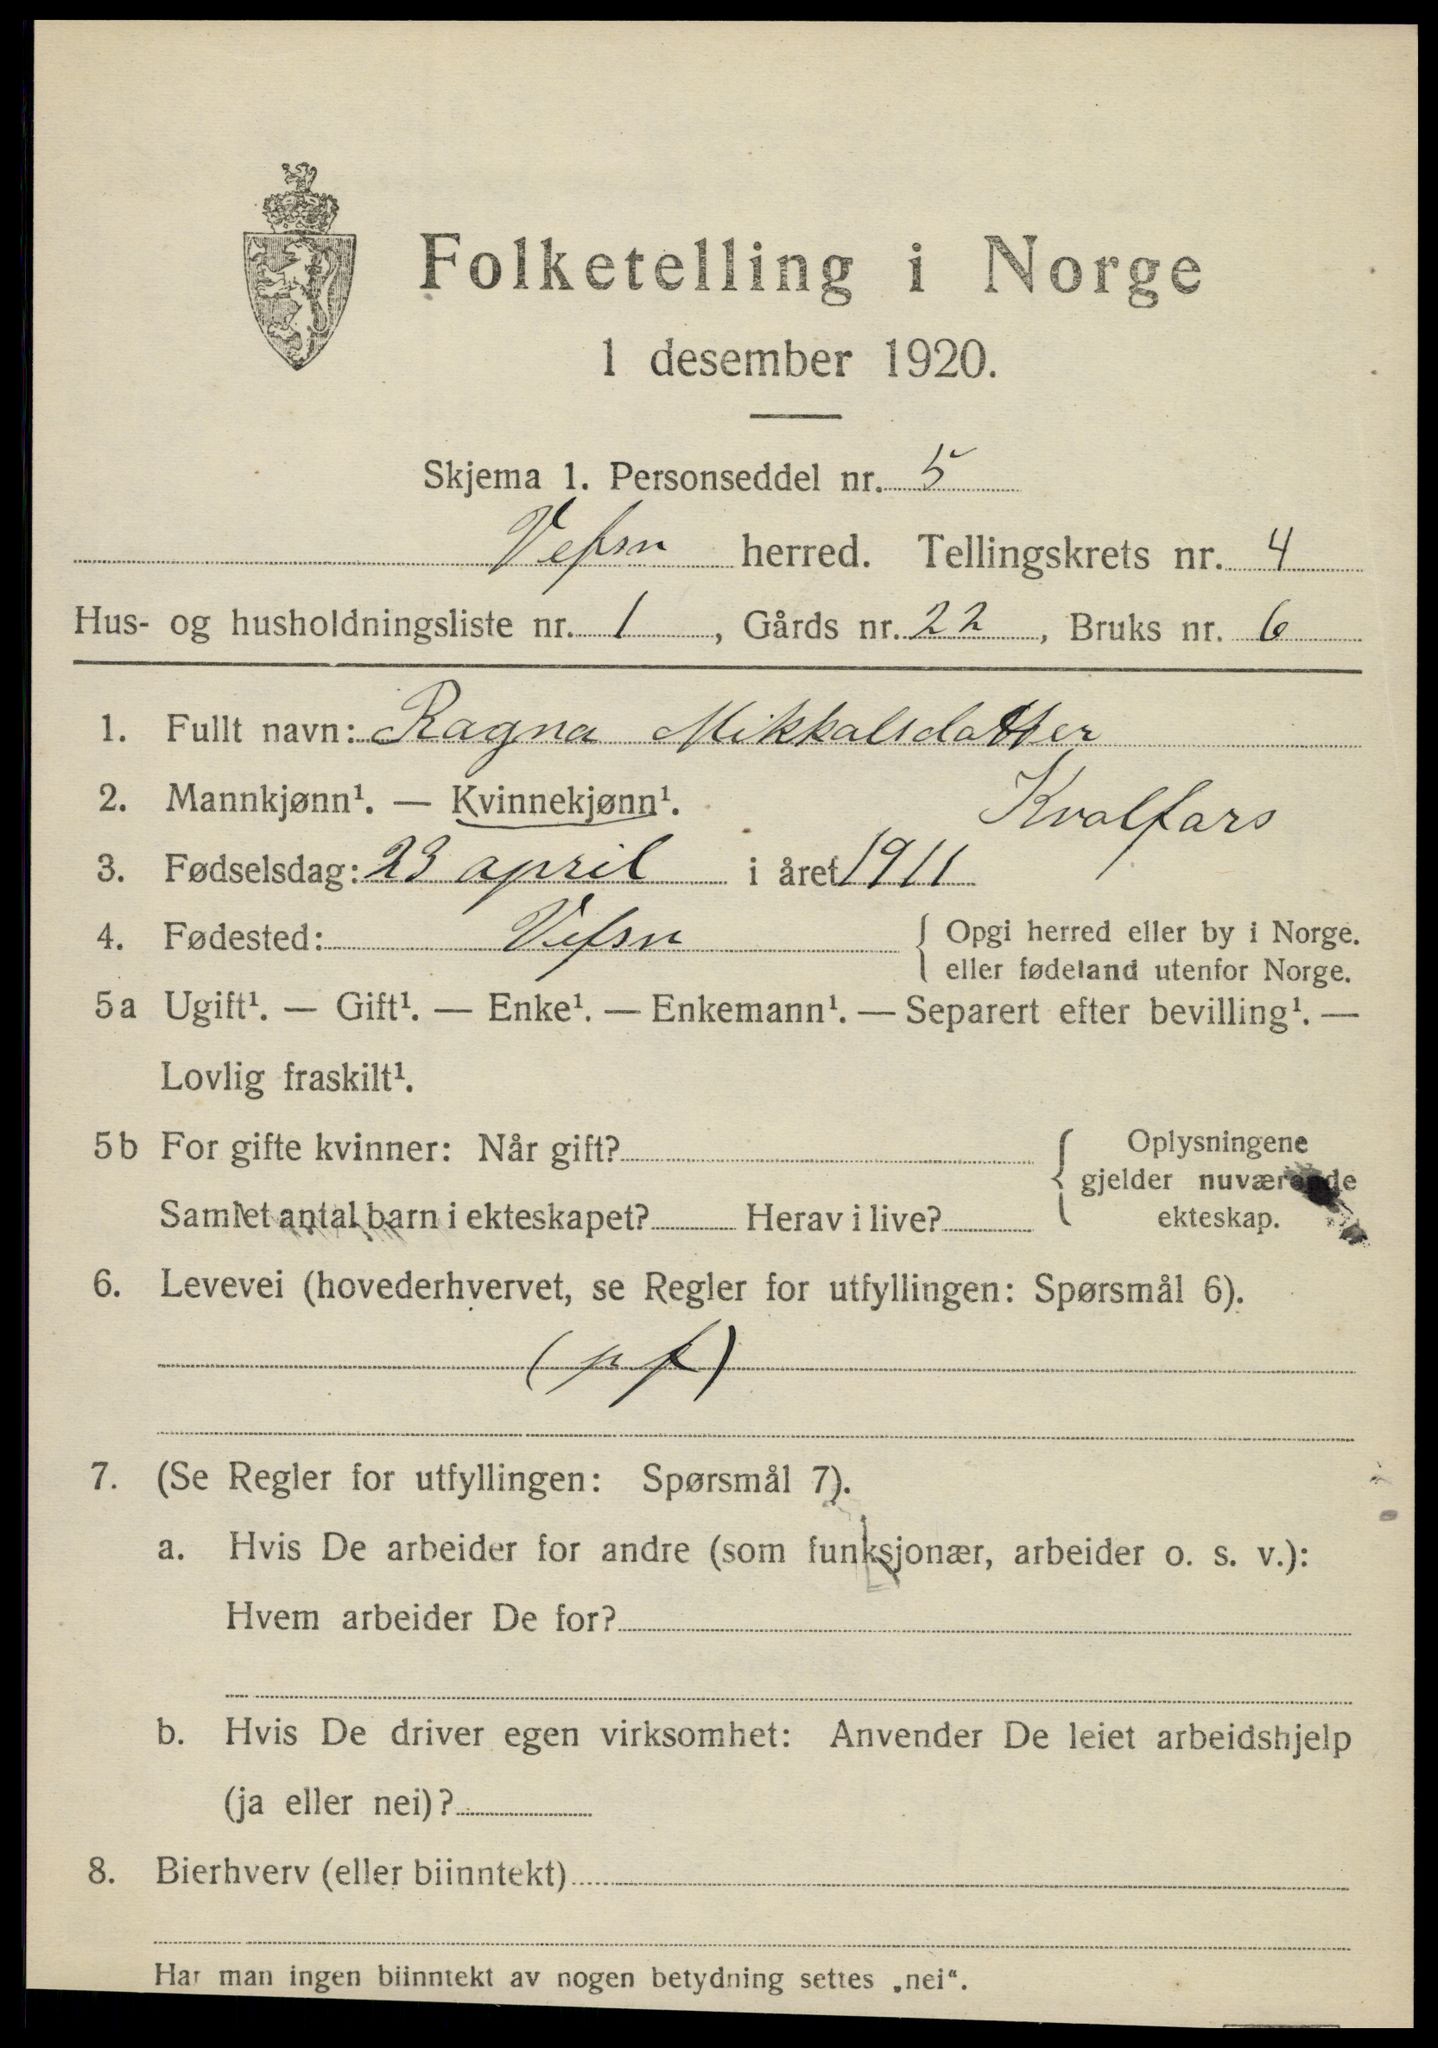 Folketelling i Norge
1 desember 1920.
Skjema 1. Personseddel nr. 5
Vefsn herred. Tellingskrets nr. 4
Hus- og husholdningsliste nr. 1, Gårds nr. 22, Bruks nr. 6
1. Fullt navn: Ragna Mikkalsdatter
Kvalfors
2. Mannkjønn¹. — Kvinnekjønn¹.
3. Fødselsdag: 23 april i året 1911
4. Fødested: Vefsn { Opgi herred eller by i Norge.
eller fødeland utenfor Norge.
5a Ugift¹. — Gift¹. — Enke¹. — Enkemann¹. — Separert efter bevilling¹. —
Lovlig fraskilt¹.
5b For gifte kvinner: Når gift? { Oplysningene
gjelder nuværende
Samlet antal barn i ekteskapet? Herav i live? ekteskap.
6. Levevei (hovederhvervet, se Regler for utfyllingen: Spørsmål 6).
(pf)
7. (Se Regler for utfyllingen: Spørsmål 7).
a. Hvis De arbeider for andre (som funksjonær, arbeider o. s. v.):
Hvem arbeider De for?
b. Hvis De driver egen virksomhet: Anvender De leiet arbeidshjelp
(ja eller nei)?
8. Bierhverv (eller biinntekt)
Har man ingen biinntekt av nogen betydning settes „nei“.